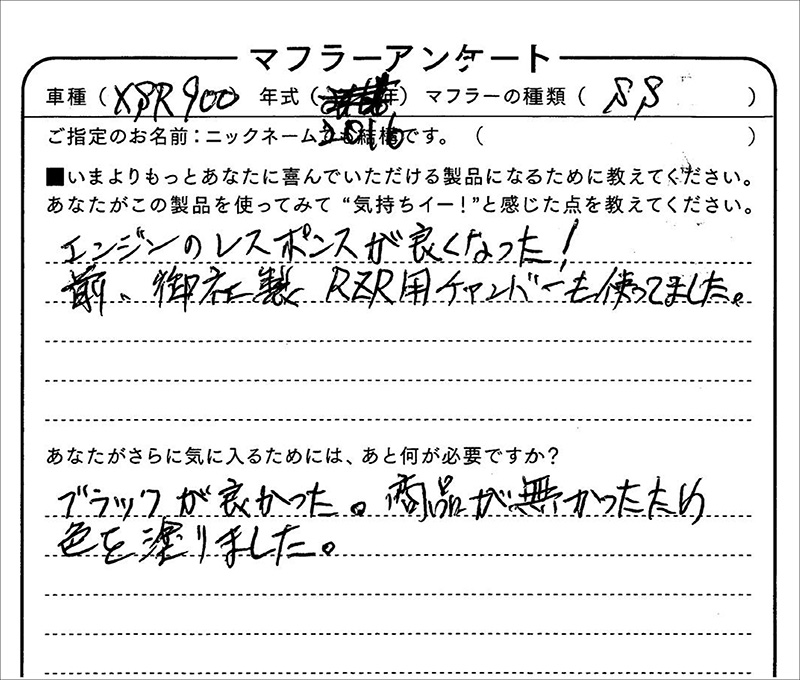 マフラーアンケート
車種（XSR900）年式（2016年）マフラーの種類（SS）
ご指定のお名前：ニックネームでも結構です。（　　　）
■いまよりもっとあなたに喜んでいただける製品になるために教えてください。
あなたがこの製品を使ってみて“気持ちイー！”と感じた点を教えてください。
エンジンのレスポンスが良くなった！
前、御社製 RZR用チャンバーも使ってました。
あなたがさらに気に入るためには、あと何が必要ですか？
ブラックが良かった。商品が無かったため
色を塗りました。